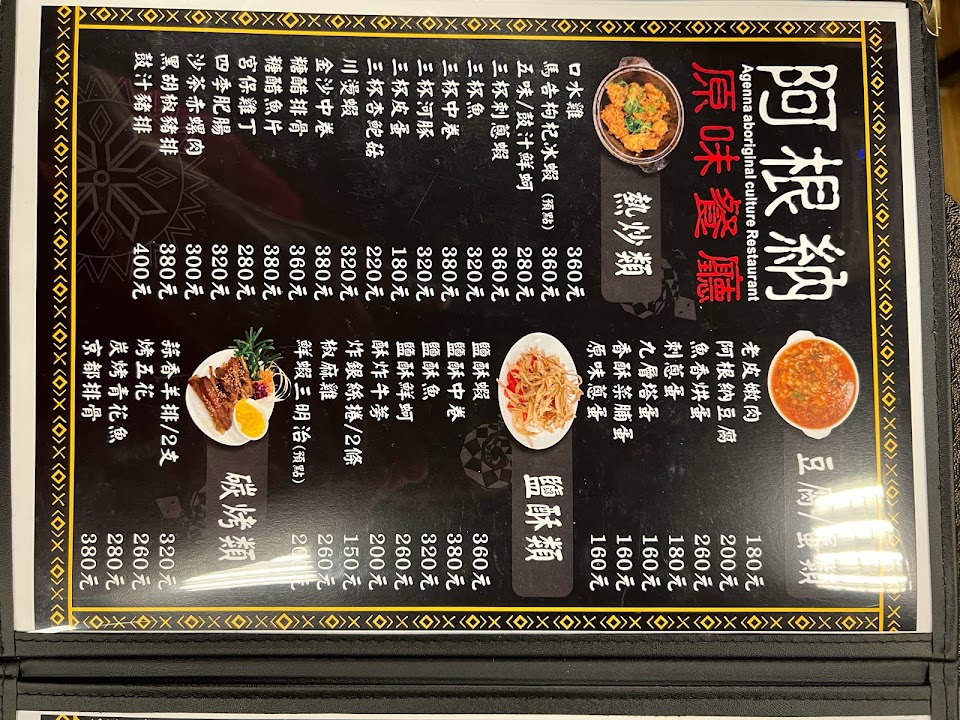 阿根納
Agenna aboriginal culture Restaurant
原味餐廳
熱炒類
口水雞 360元
馬告枸杞冰蝦(預點) 360元
五味/豉汁鮮蚵 280元
三杯刺蔥蝦 360元
三杯魚 320元
三杯中卷 380元
三杯河豚 320元
三杯皮蛋 180元
三杯杏鮑菇 220元
川燙蝦 320元
金沙中卷 380元
糖醋排骨 360元
糖醋魚片 380元
宮保雞丁 280元
四季肥腸 320元
沙茶赤螺肉 300元
黑胡椒豬排 380元
豉汁豬排 400元
豆腐/蛋類
老皮嫩肉 180元
阿根納豆腐 200元
魚香烘蛋 260元
刺蔥蛋 180元
九層塔蛋 160元
香酥菜脯蛋 160元
原味蔥蛋 160元
鹽酥類
鹽酥蝦 360元
鹽酥中卷 380元
鹽酥魚 320元
鹽酥鮮蚵 260元
酥炸牛蒡 200元
炸銀絲捲/2條 150元
椒麻雞 260元
鮮蝦三明治(預點) 200元
碳烤類
蒜香羊排/2支 320元
烤五花 260元
炭烤青花魚 280元
京都排骨 380元